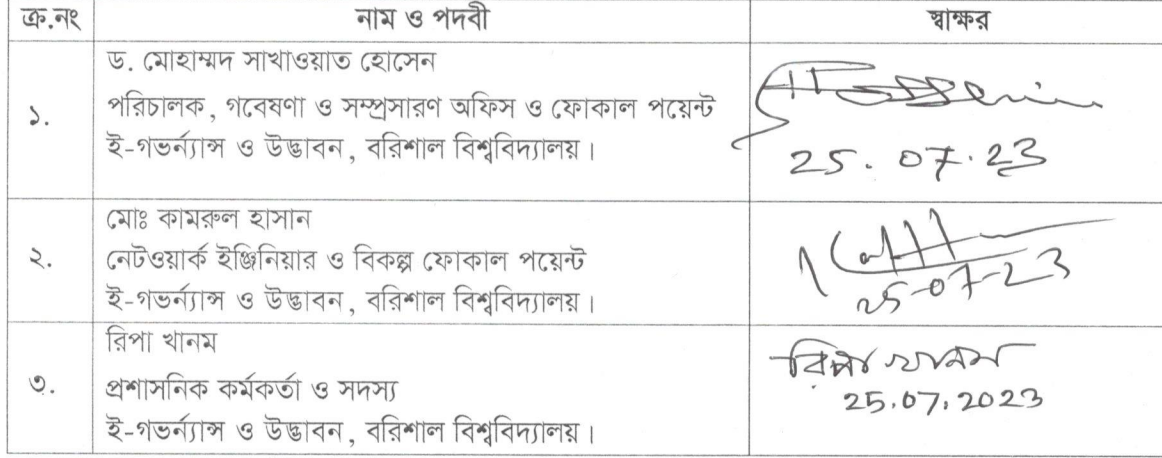 ক্র.নং নাম ও পদবী স্বাক্ষর
ড. মোহাম্মদ সাখাওয়াত হোসেন
১. পরিচালক, গবেষণা ও সম্প্রসারণ অফিস ও ফোকাল পয়েন্ট
ই-গভর্ন্যান্স ও উদ্ভাবন, বরিশাল বিশ্ববিদ্যালয়।
25.07.23
মোঃ কামরুল হাসান
২. নেটওয়ার্ক ইঞ্জিনিয়ার ও বিকল্প ফোকাল পয়েন্ট
ই-গভর্ন্যান্স ও উদ্ভাবন, বরিশাল বিশ্ববিদ্যালয়।
25-07-23
রিপা খানম
৩. প্রশাসনিক কর্মকর্তা ও সদস্য
ই-গভর্ন্যান্স ও উদ্ভাবন, বরিশাল বিশ্ববিদ্যালয়।
রিপা খানম
25.07.2023